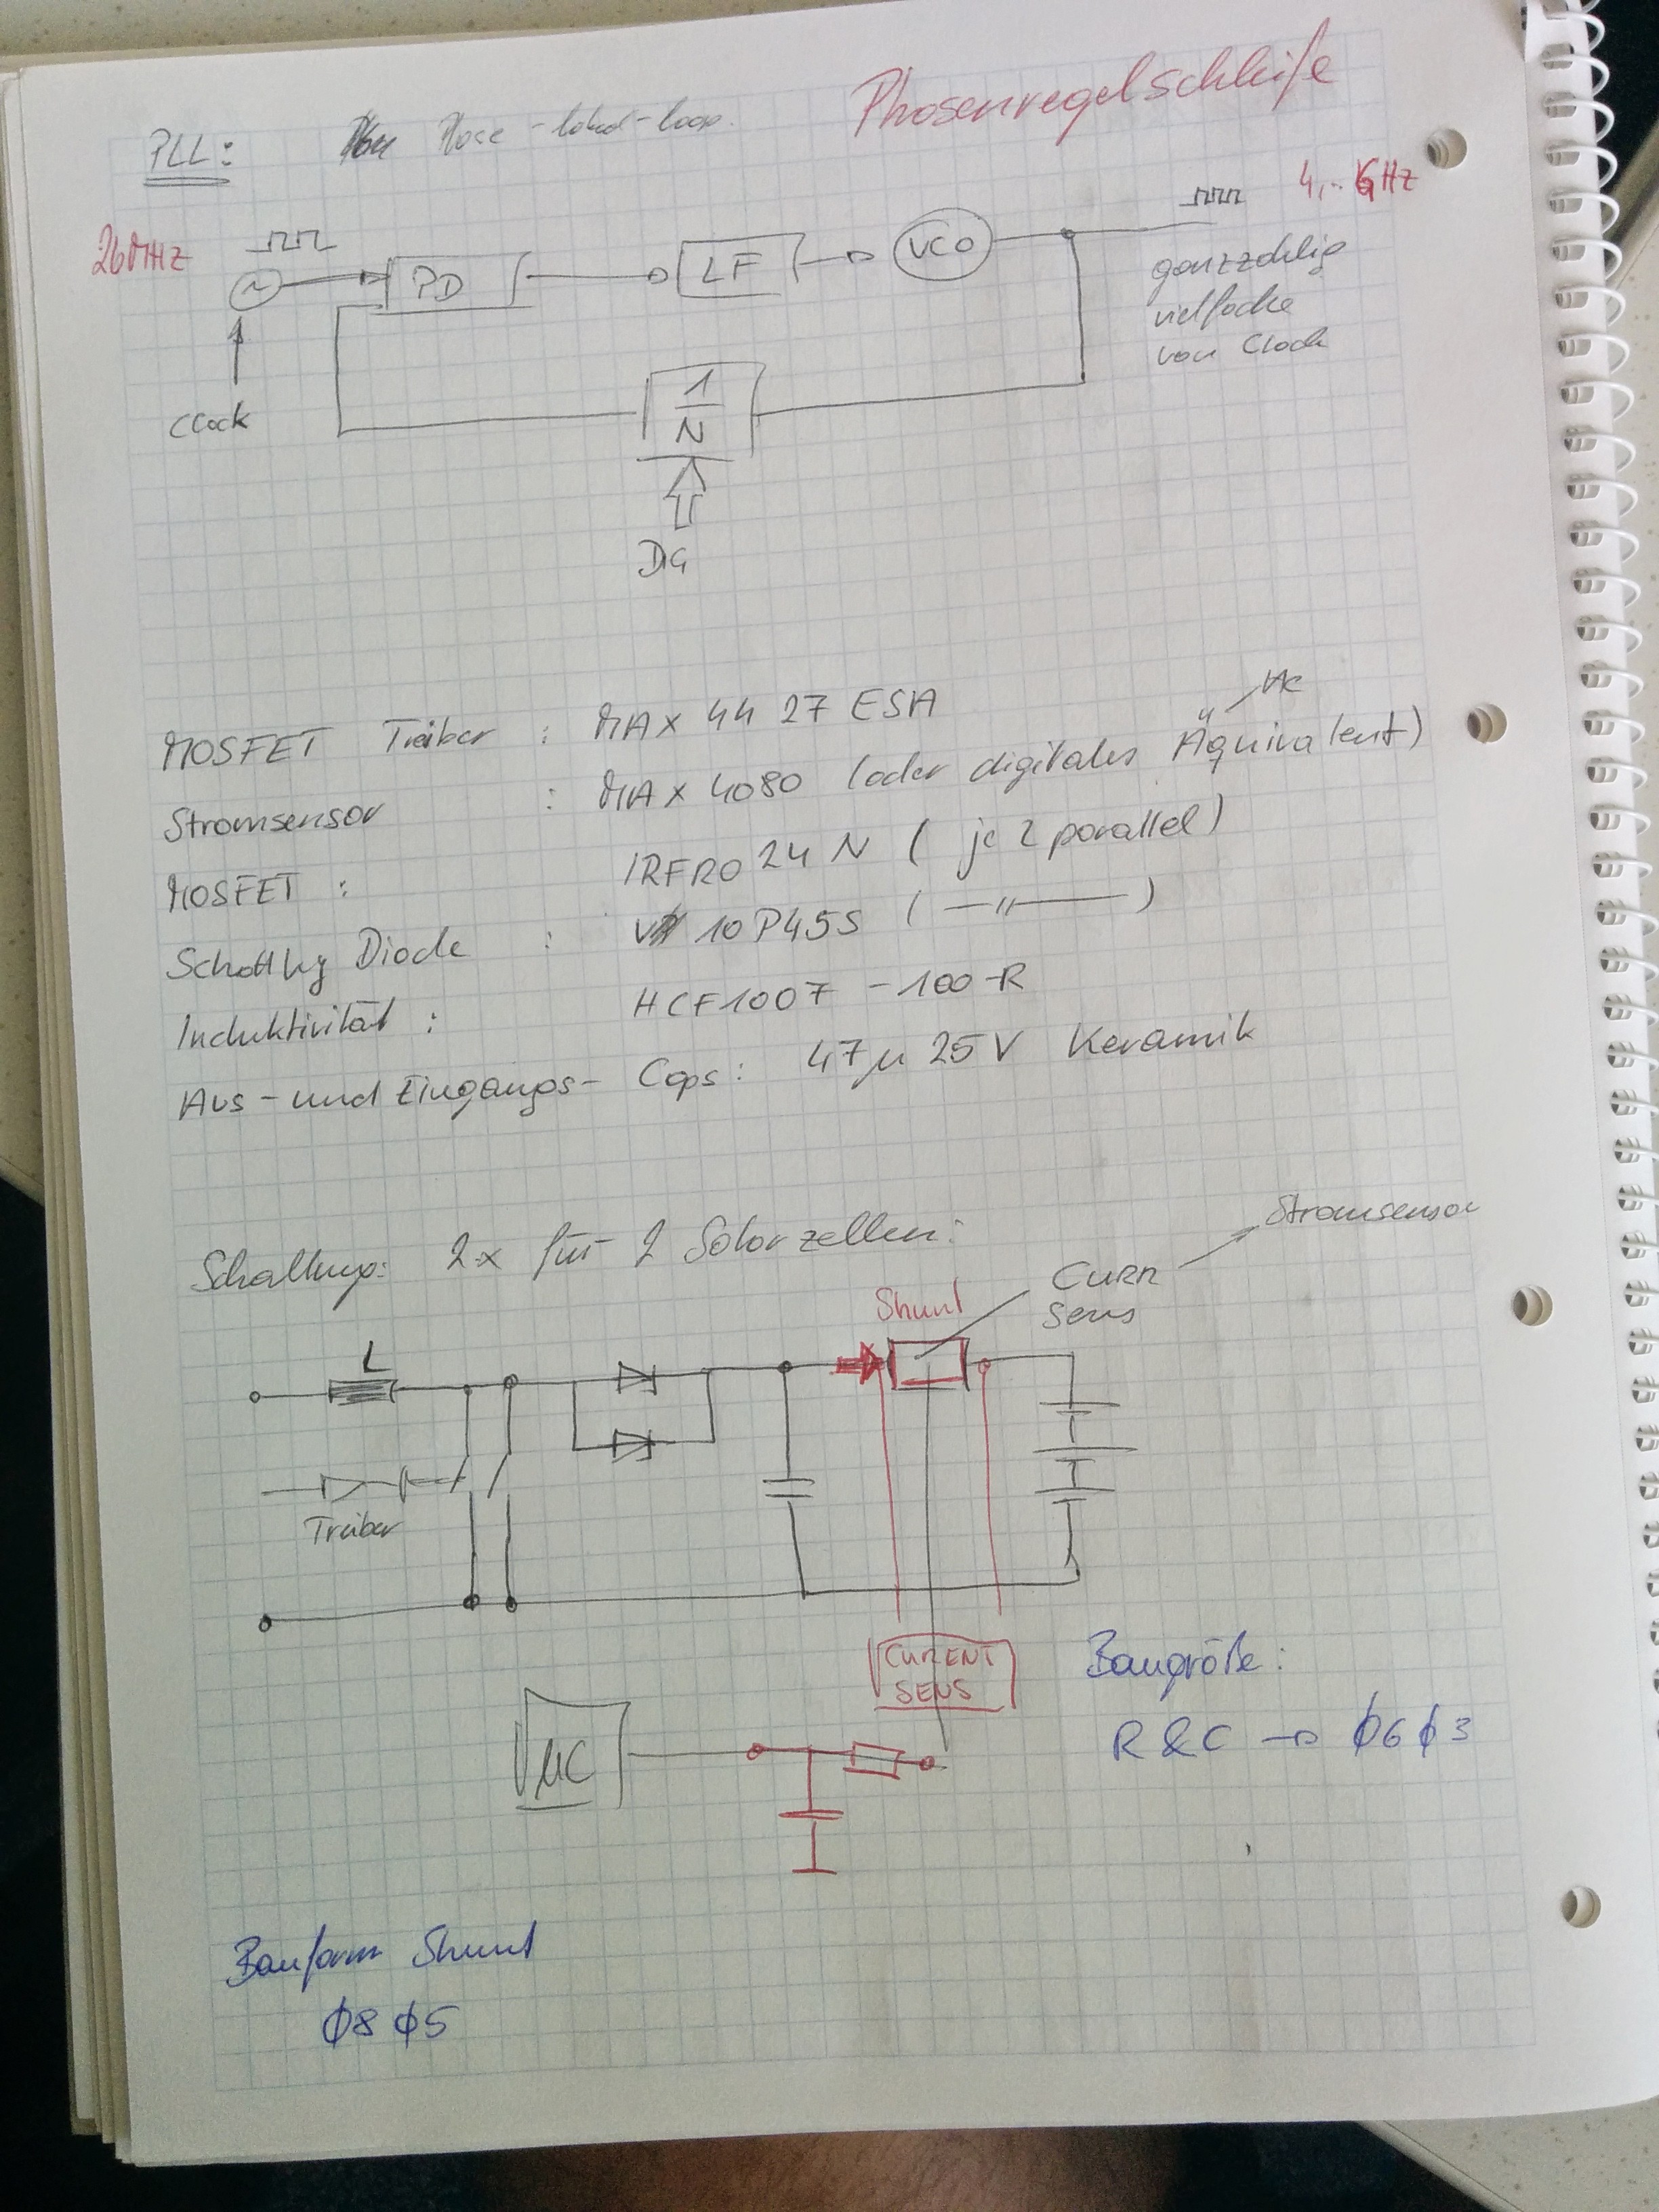 Phasenregelschleife
PLL: Phase-locked-loop.
26MHz
4,.. GHz
PD
LF
VCO
ganzzahlig
vielfache
von Clock
Clock
1
N
DIG
MOSFET Treiber : MAX 4427 ESA
Stromsensor : MAX 4080 (oder digitales Äquivalent)
MOSFET : IRFR024N ( je 2 parallel)
Schottky Diode : V10P45S ( —〃— )
Induktivität : HCF1007-100-R
Aus- und Eingangs- Caps: 47µ 25V Keramik
Schaltung: 2x für 2 Solarzellen:
Stromsensor
Curr
Sens
Shunt
L
Treiber
CURENT
SENS
Baugröße:
R & C → 0603
µC
Bauform Shunt
0805